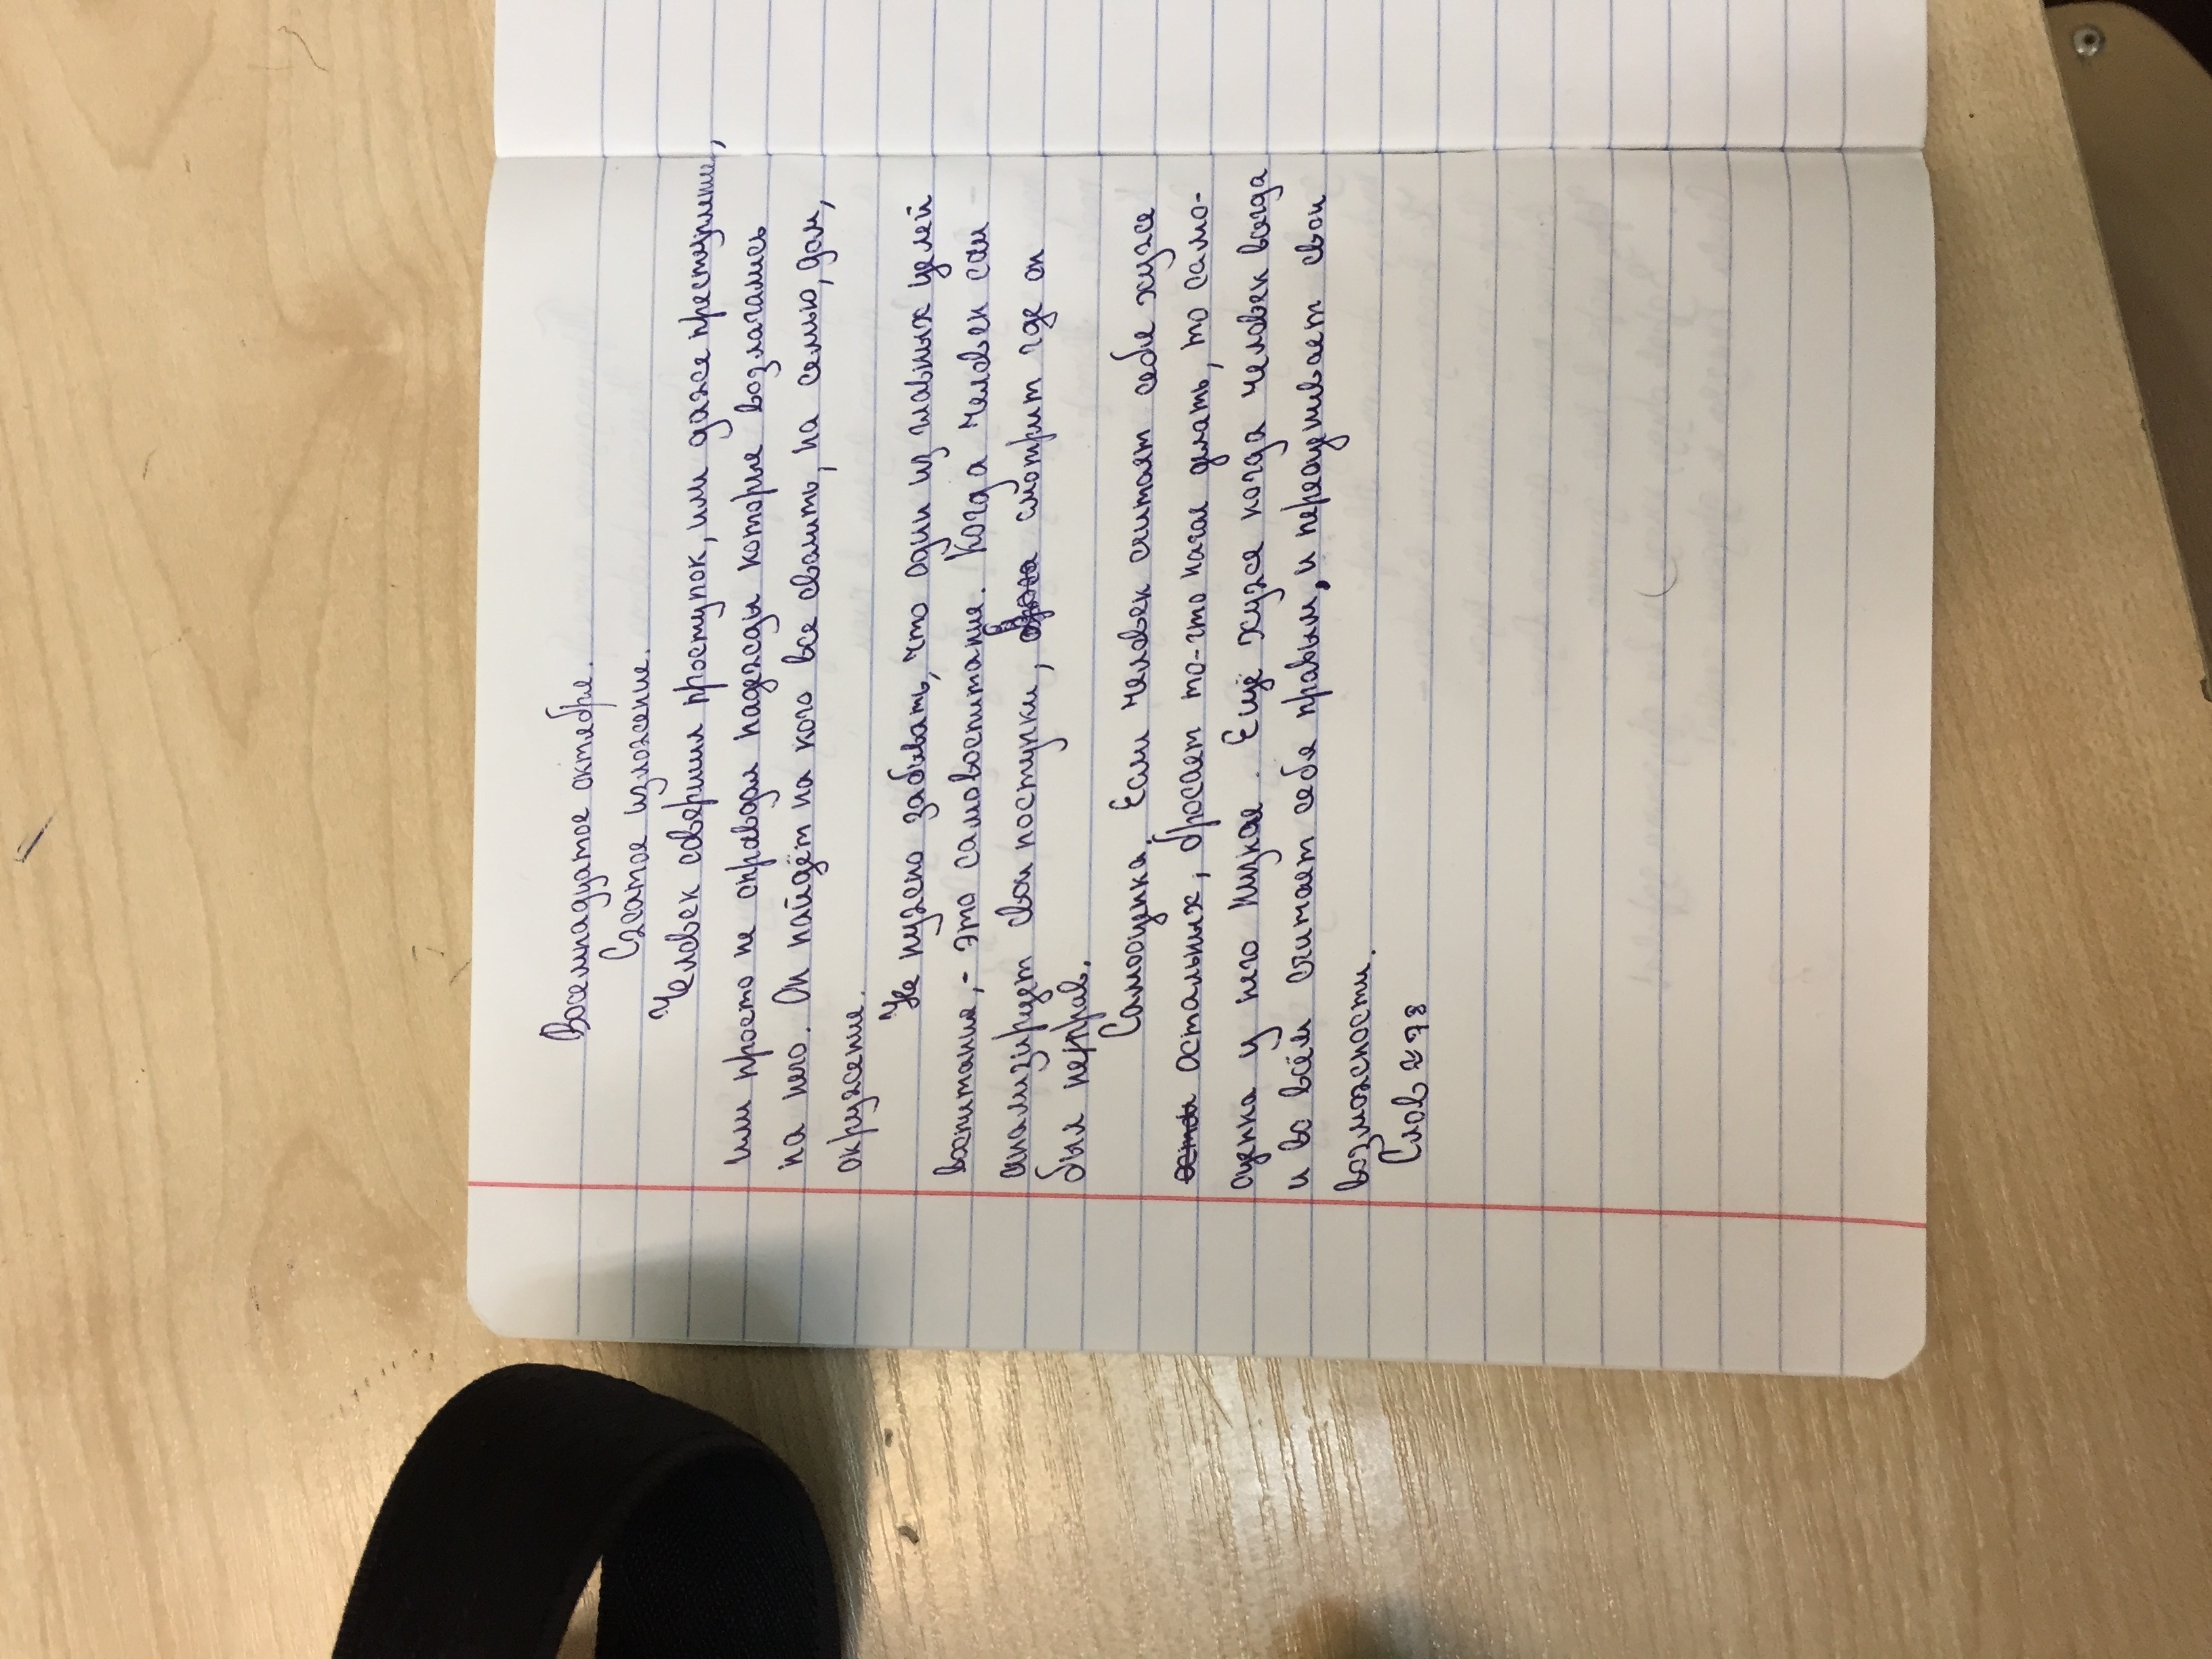 Восемнадцатое октебре.
Сжатое изложение.
Человек совершил проступок, или даже преступление,
или просто не оправдал надежды которые возлагались
на него. Он найдёт на кого все свалить, на семью, дом,
окружение.
Не нужно забывать, что один из главных целей
воспитание, - это самовоспитание. Когда человек сам
анализирует свои поступки, смотрит где он
был неправ.
Самооценка. Если человек считает себе хуже
остальных, бросает то-что начал делать, то само-
оценка у него низкая. Ещё хуже когда человек всегда
и во всём считает себе правым, и переоценивает свои
возможности.
Слов ≈ 98